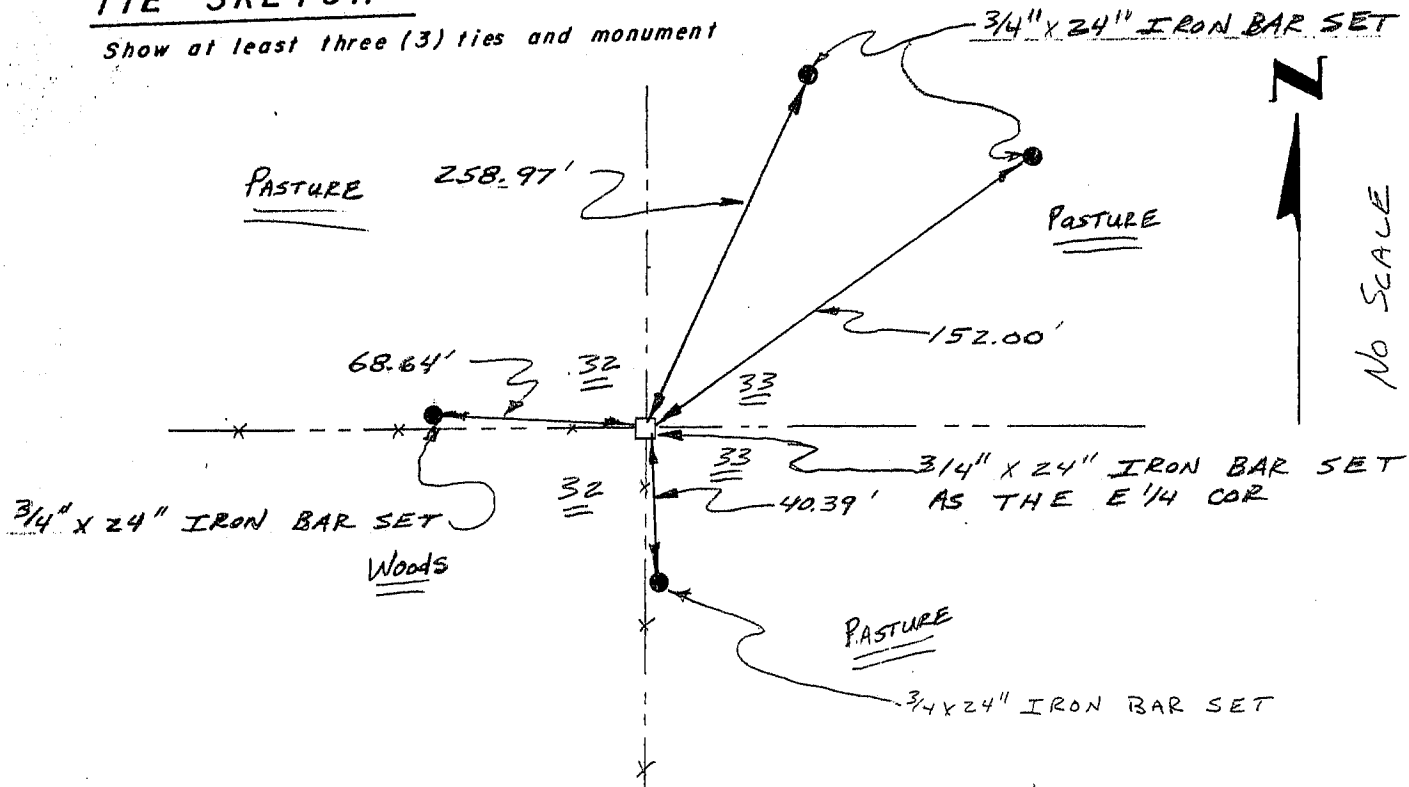 TIE SKETCH
Show at least three (3) ties and monument
3/4" X 24" IRON BAR SET
N
PASTURE
258.97'
PASTURE
NO SCALE
152.00'
68.64'
32
33
33
3/4" X 24" IRON BAR SET
AS THE E 1/4 COR
32
40.39'
3/4" X 24" IRON BAR SET
Woods
PASTURE
3/4 X 24" IRON BAR SET